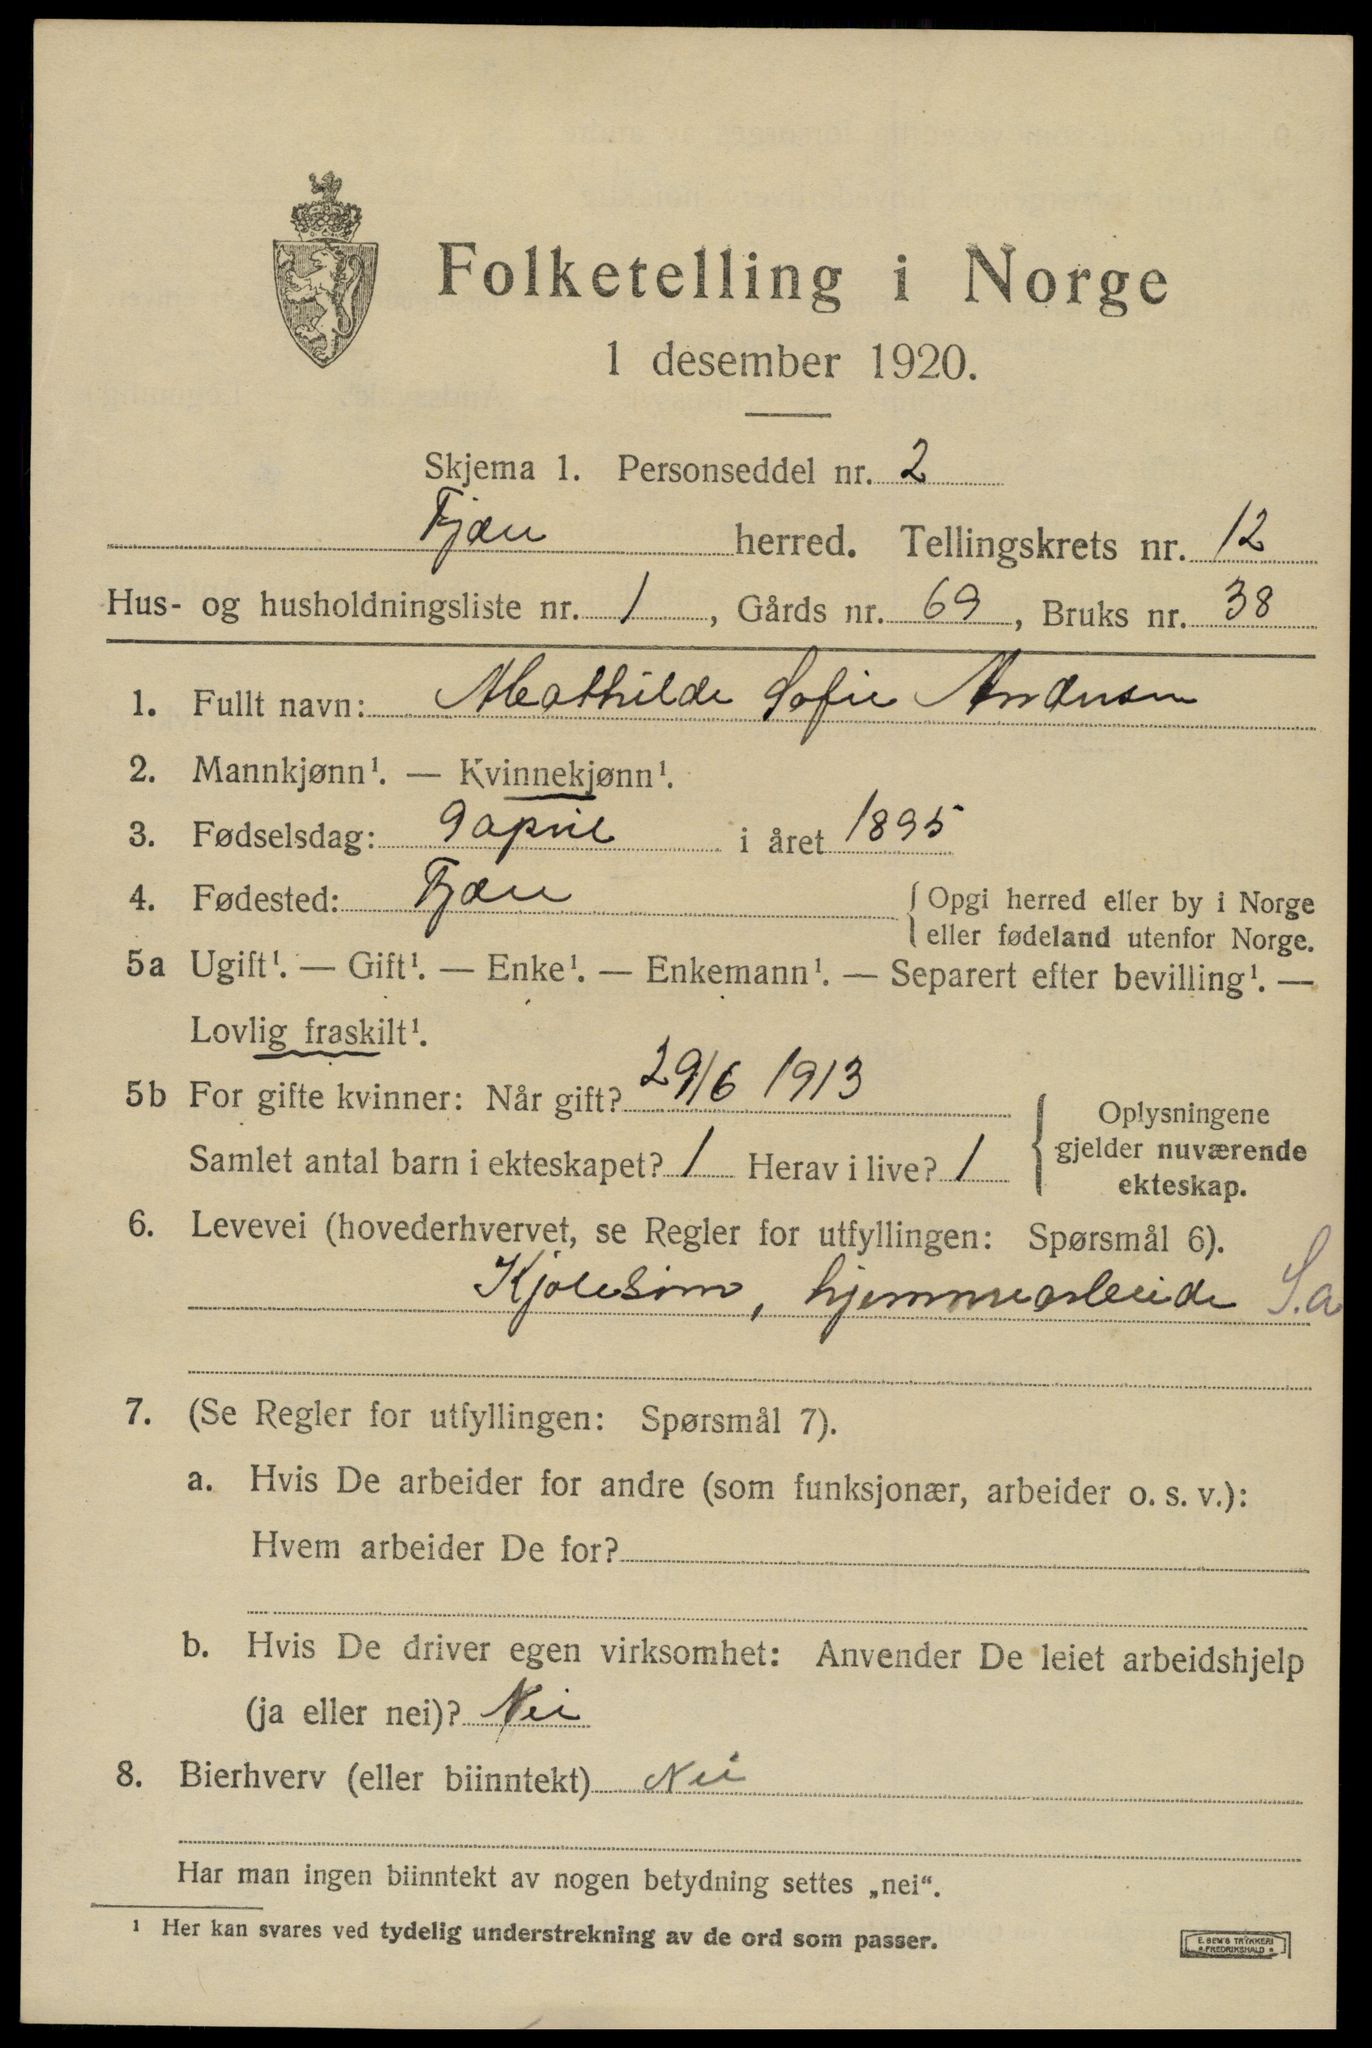 Folketelling i Norge
1 desember 1920.
Skjema 1. Personseddel nr. 2
Fjære herred. Tellingskrets nr. 12
Hus- og husholdningsliste nr. 1, Gårds nr. 69, Bruks nr. 38
1. Fullt navn: Mathilde Sofie Andersen
2. Mannkjønn¹. — Kvinnekjønn¹.
3. Fødselsdag: 9 april i året 1895
4. Fødested: Fjære { Opgi herred eller by i Norge
eller fødeland utenfor Norge.
5a Ugift¹. — Gift¹. — Enke¹. — Enkemann¹. — Separert efter bevilling¹. —
Lovlig fraskilt¹.
5b For gifte kvinner: Når gift? 29/6 1913
Samlet antal barn i ekteskapet? 1 Herav i live? 1
{ Oplysningene
gjelder nuværende
ekteskap.
6. Levevei (hovederhvervet, se Regler for utfyllingen: Spørsmål 6).
Kjolesøm, hjemmearbeide S.a
7. (Se Regler for utfyllingen: Spørsmål 7).
a. Hvis De arbeider for andre (som funksjonær, arbeider o. s. v.):
Hvem arbeider De for?
b. Hvis De driver egen virksomhet: Anvender De leiet arbeidshjelp
(ja eller nei)? Nei
8. Bierhverv (eller biinntekt) Nei
Har man ingen biinntekt av nogen betydning settes „nei“.
¹ Her kan svares ved tydelig understrekning av de ord som passer.
E. SEM'S TRYKKERI
FREDRIKSHALD